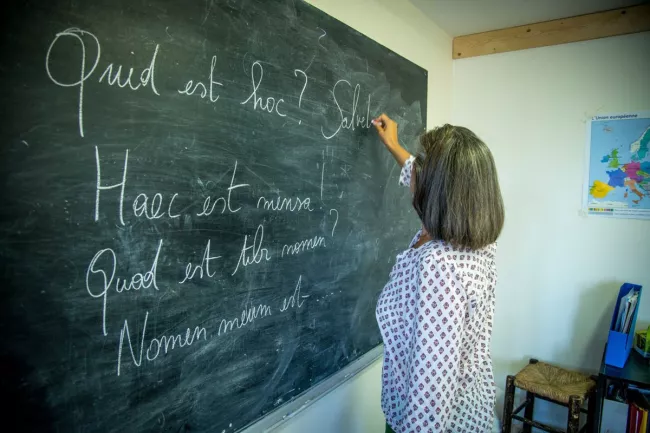 Quid est hoc? Salve
Haec est mensa!
Quod est tibi nomen?
Nomen meum est
L'Union européenne